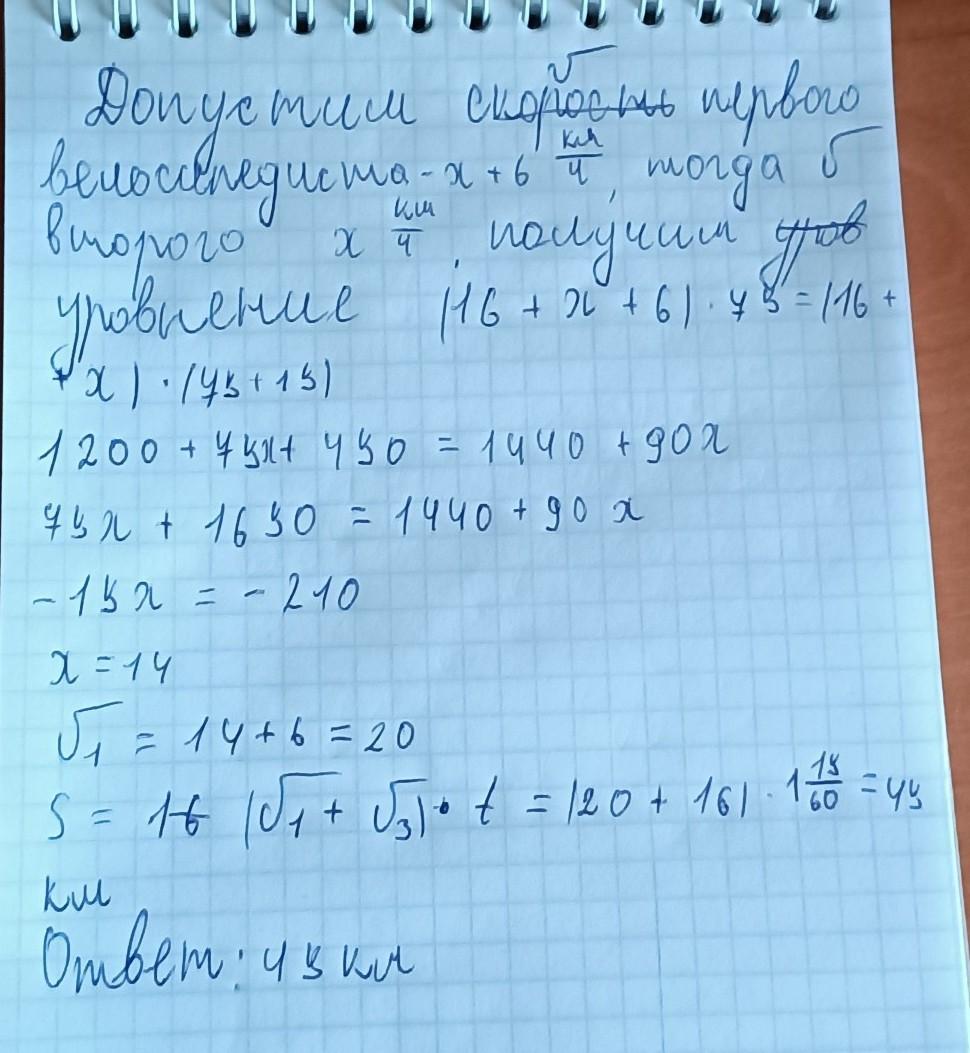 Допустим скорость √ первого
велоссепедиста - x + 6 км/ч, тогда √
второго x км/ч, получим уров
уровнение (16 + x + 6) · 75 = (16 +
+ x) · (75 + 15)
1200 + 75x + 450 = 1440 + 90x
75x + 1650 = 1440 + 90x
-15x = -210
x = 14
√1 = 14 + 6 = 20
S = 16 (√1 + √3) · t = (20 + 16) · 1 15/60 = 45
км
Ответ: 45 км